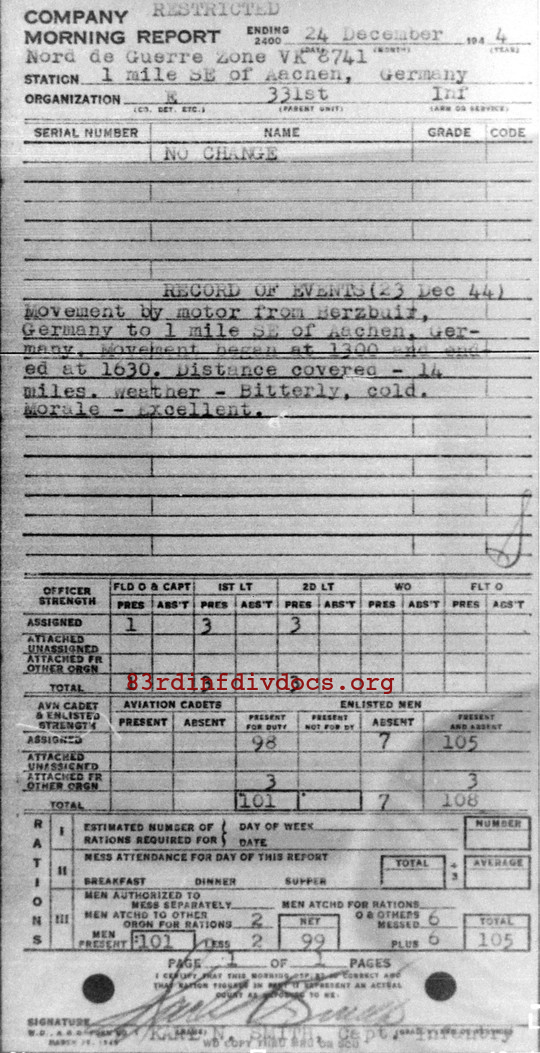 COMPANY RESTRICTED
MORNING REPORT ENDING 2400 24 December 194 4
(DATE) (MONTH) (YEAR)
Nord de Guerre Zone VK 8741
STATION 1 mile SE of Aachen, Germany
ORGANIZATION E 331st Inf
(CO. DET. ETC.) (PARENT UNIT) (ARM OR SERVICE)
SERIAL NUMBER NAME GRADE CODE
NO CHANGE
RECORD OF EVENTS(23 Dec 44)
Movement by motor from Berzbuir,
Germany to 1 mile SE of Aachen, Ger-
many. Movement began at 1300 and end-
ed at 1630. Distance covered - 14
miles. Weather - Bitterly, cold.
Morale - Excellent.
OFFICER STRENGTH FLD O & CAPT 1ST LT 2D LT WO FLT O
PRES ABS'T PRES ABS'T PRES ABS'T PRES ABS'T PRES ABS'T
ASSIGNED 1 3 3
ATTACHED UNASSIGNED
ATTACHED FR OTHER ORGN
TOTAL 3 3
83rdinfdivdocs.org
AVN CADET & ENLISTED STRENGTH AVIATION CADETS ENLISTED MEN
PRESENT ABSENT PRESENT FOR DUTY PRESENT NOT FOR DY ABSENT PRESENT AND ABSENT
ASSIGNED 98 7 105
ATTACHED UNASSIGNED
ATTACHED FR OTHER ORGN 3 3
TOTAL 101 7 108
RATIONS
I ESTIMATED NUMBER OF RATIONS REQUIRED FOR { DAY OF WEEK DATE NUMBER
II MESS ATTENDANCE FOR DAY OF THIS REPORT TOTAL ÷ 3 AVERAGE
BREAKFAST DINNER SUPPER
III MEN AUTHORIZED TO MESS SEPARATELY MEN ATCHD FOR RATIONS
MEN ATCHD TO OTHER ORGN FOR RATIONS 2 NET O & OTHERS MESSED 6 TOTAL
MEN PRESENT 101 LESS 2 99 PLUS 6 105
PAGE 1 OF 1 PAGES
I CERTIFY THAT THIS MORNING REPORT IS CORRECT AND
THAT RATION FIGURES IN PART III REPRESENT AN ACTUAL
COUNT AS REPORTED TO ME.
SIGNATURE
KARL N. SMITH, Capt, Infantry
WD COPY THRU